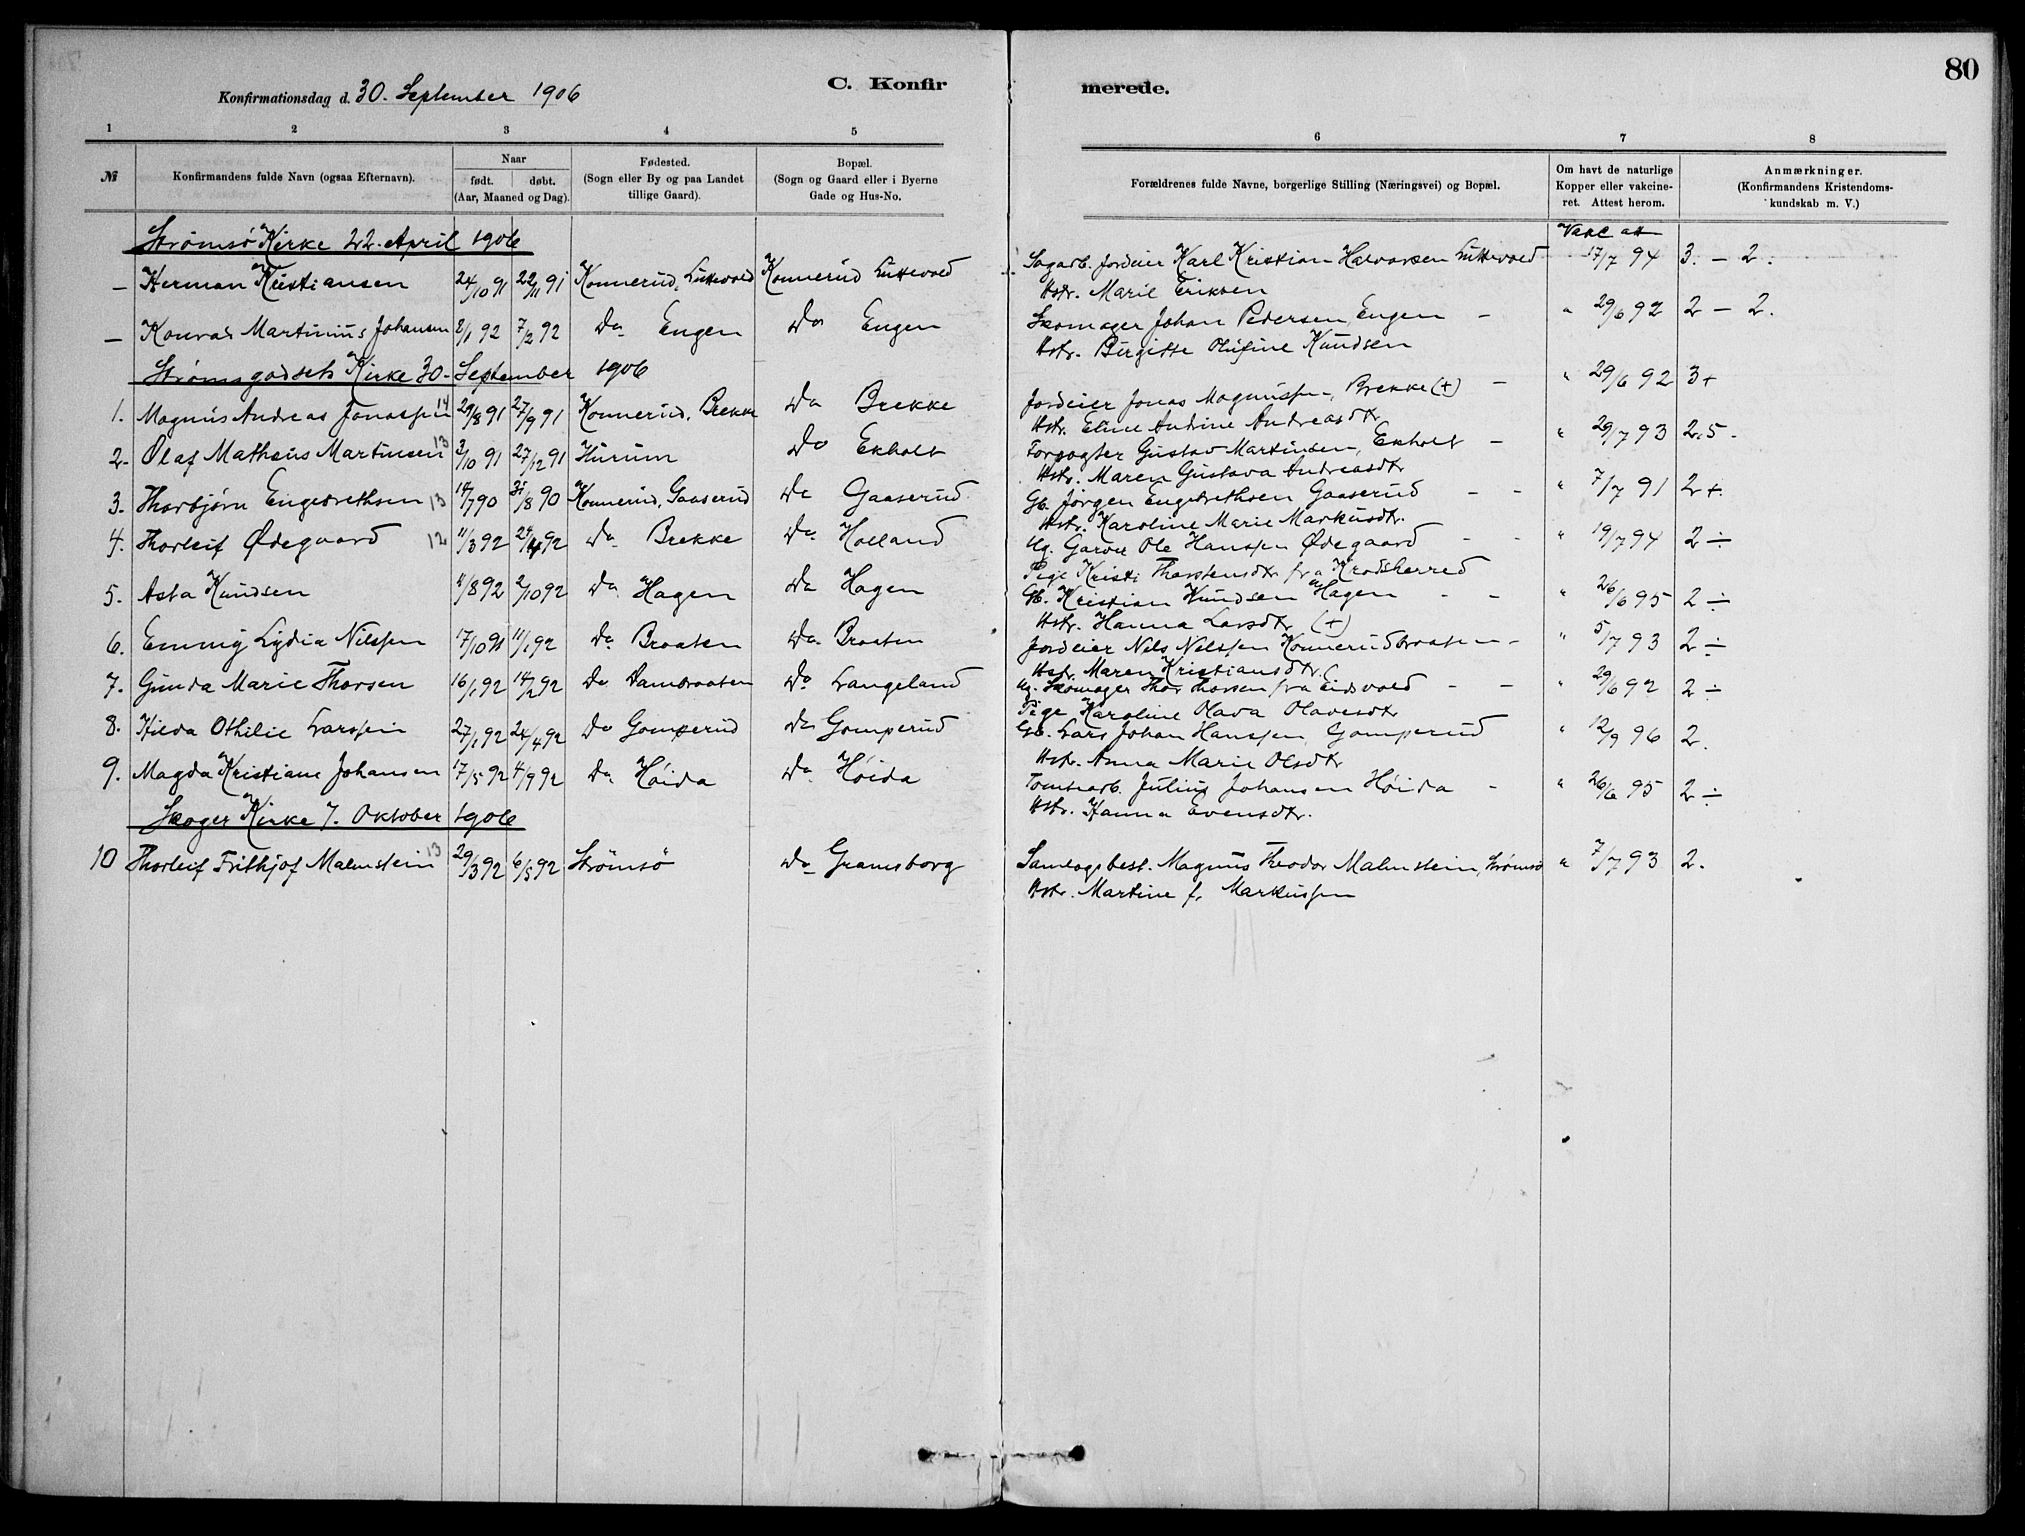 80
C. Konfirmerede.
Konfirmationsdag d. 30. September 1906
1 2 3 4 5 6 7 8
№
Konfirmandens fulde Navn (ogsaa Efternavn).
Naar
født. døbt.
(Aar, Maaned og Dag).
Fødested.
(Sogn eller By og paa Landet
tillige Gaard).
Bopæl.
(Sogn og Gaard eller i Byerne
Gade og Hus-No.
Forældrenes fulde Navne, borgerlige Stilling (Næringsvei) og Bopæl.
Om havt de naturlige
Kopper eller vakcine-
ret. Attest herom.
Anmærkninger.
(Konfirmandens Kristendoms-
kundskab m. V.)
Strømsø Kirke 22. April 1906
Vakc att
— Herman Kristiansen 24/10 91 22/11 91 Konnerud, Luttevold Konnerud Luttevold Sagarb. Jordeier Karl Kristian Halvorsen Luttevold 17/7 94 3. – 2.
Hstr. Marie Eriksen
— Konrad Martinius Johansen 8/1 92 7/2 92 Do Engen Do Engen Skomager Johan Pedersen, Engen – " 29/6 92 2 – 2.
Hstr. Birgitte Olufine Knudsen
Strømsgodsets Kirke 30. September 1906
1. Magnus Andreas Jonassen 14 29/8 91 27/9 91 Konnerud, Brekke Do Brekke Jordeier Jonas Magnussen, Brekke (+) – " 29/6 92 3+
Hstr. Eline Andrine Andreasdtr
2. Olaf Matheus Martinsen 13 3/10 91 27/12 91 Hurum Do Ekholt Forpagter Gustav Martinsen, Ekholt – " 29/7 93 2.5.
Hstr. Maren Gustava Andreasdtr
3. Thorbjørn Engebrethsen 13 14/7 90 31/8 90 Konnerud, Gaaserud Do Gaaserud Gb. Jørgen Engebrethsen Gaaserud – – " 7/7 91 2+.
Hstr. Karoline Marie Markusdtr.
4. Thorleif Ødegaard 12 11/3 92 24/4 92 Do Brekke Do Holland Ug. Garver Ole Hanssen Ødegaard – – " 19/7 94 2 ÷
Pige Kristi Thorstensdtr fra Krødsherred
5. Asta Knudsen 11/8 92 2/10 92 Do Hagen Do Hagen Gb. Kristian Knudsen Hagen – – " 26/6 95 2 ÷
Hstr. Hanna Larsdtr (+)
6. Emmy Lydia Nilssen 17/10 91 11/1 92 Do Braaten Do Braaten Jordeier Nils Nilssen Konnerudbraaten – " 5/7 93 2 ÷
Hstr. Maren Kristiansdtr (
7. Gunda Marie Thorsen 16/1 92 14/2 92 Do Dambraaten Do Langeland Ug. Skomager Thor Thorsen fra Eidsvold – – " 29/6 92 2 ÷
Pige Karoline Olava Olavesdtr
8. Hilda Othilie Larssen 27/1 92 24/4 92 Do Gomperud Do Gomperud Gb. Lars Johan Hanssen, Gomperud " 12/9 96 2.
Hstr. Anna Marie Olsdtr
9. Magda Kristiane Johansen 17/5 92 4/9 92 Do Høida Do Høida Tomtearb. Julius Johansen Høida – " 26/6 95 2 ÷
Hstr. Hanna Evensdtr.
Skoger Kirke 7. Oktober 1906
10 Thorleif Frithjof Malmstein 13 29/3 92 6/5 92 Strømsø Do Gramsborg Samlagsbest. Magnus Theodor Malmstein, Strømsø " 7/7 93 2.
Hstr. Martine f. Markussen